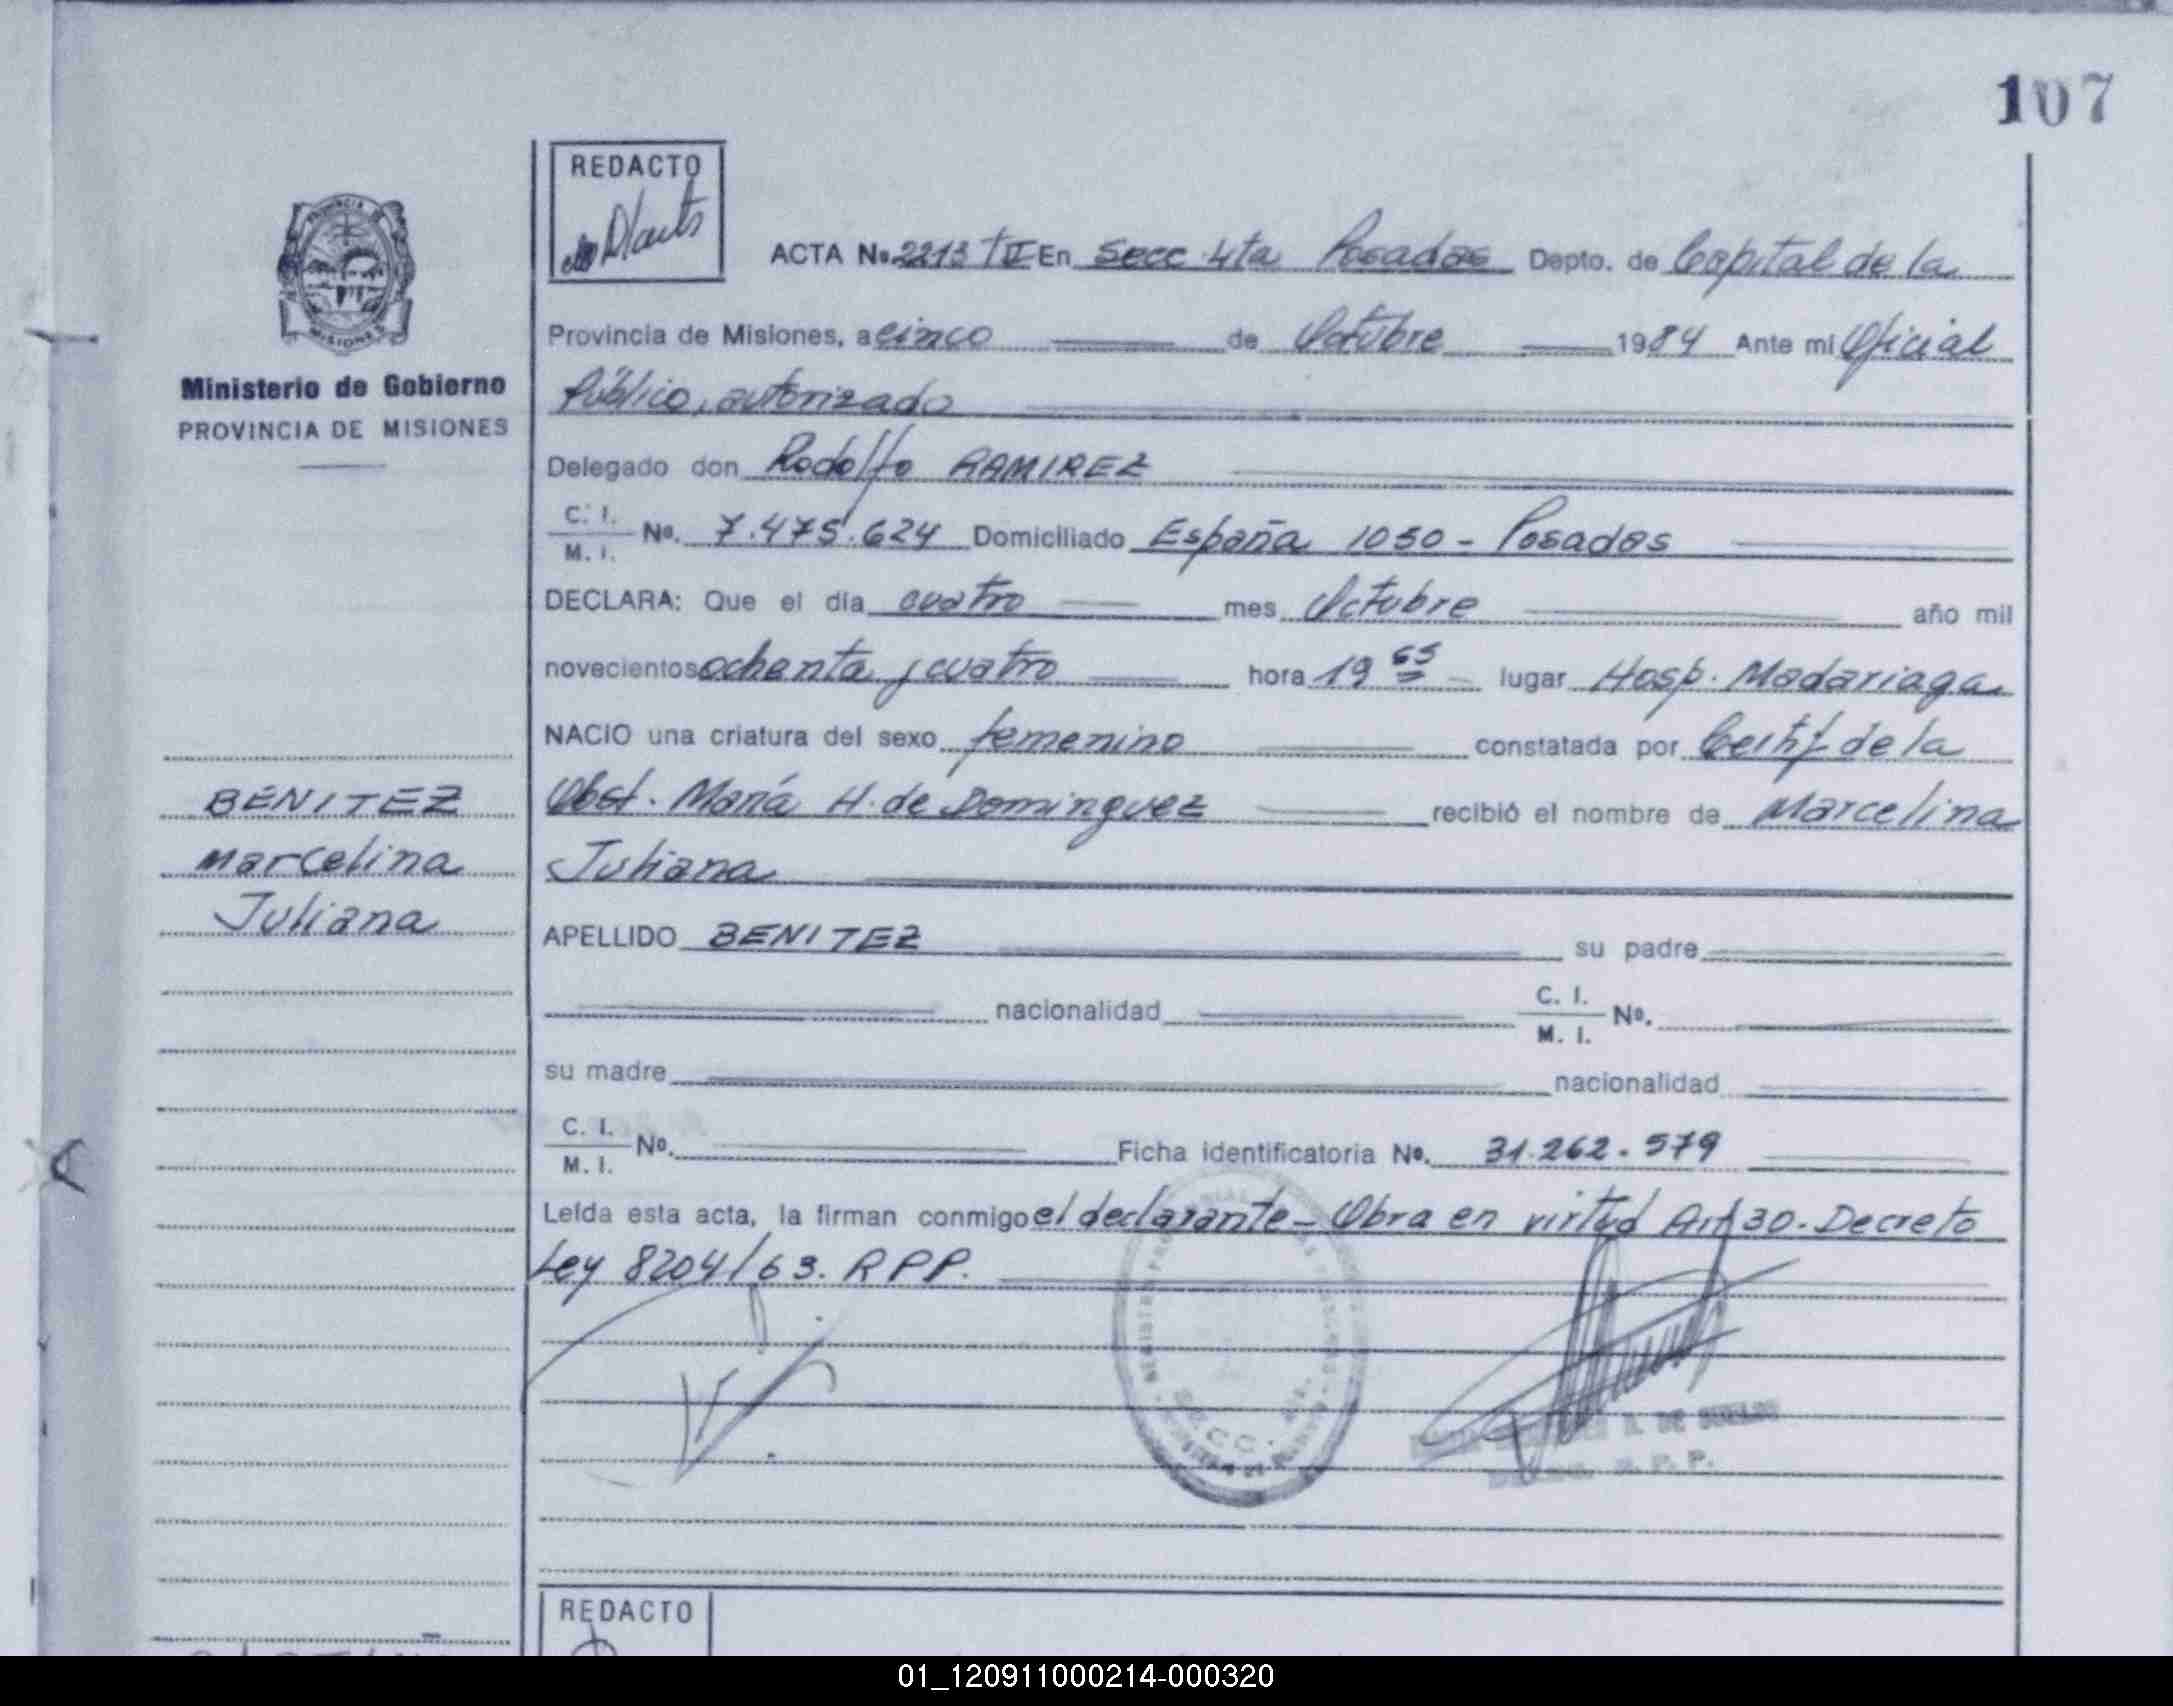 107
REDACTO
PROVINCIA DE
MISIONES
Ministerio de Gobierno
PROVINCIA DE MISIONES
ACTA No 2213 TII En Secc 4ta Posadas Depto. de Capital de la
Provincia de Misiones, a cinco de Octubre 1984 Ante mi Oficial
Público, autorizado
Delegado don Rodolfo RAMIREZ
C. I.
M. I. No. 7.475.624 Domiciliado España 1050 - Posadas
DECLARA: Que el día cuatro mes Octubre año mil
novecientos ochenta y cuatro hora 19 lugar Hosp. Madariaga
NACIO una criatura del sexo femenino constatada por Certif de la
Obst. María H. de Dominguez recibió el nombre de Marcelina
Juliana
BENITEZ
Marcelina
Juliana
APELLIDO BENITEZ su padre
nacionalidad C. I.
M. I. No.
su madre nacionalidad
C. I.
M. I. No. Ficha identificatoria No. 31.262.579
Leída esta acta, la firman conmigo el declarante - Obra en virtud Art 30. Decreto
Ley 8204/63. RPP.
SECC.
REDACTO
01_120911000214-000320